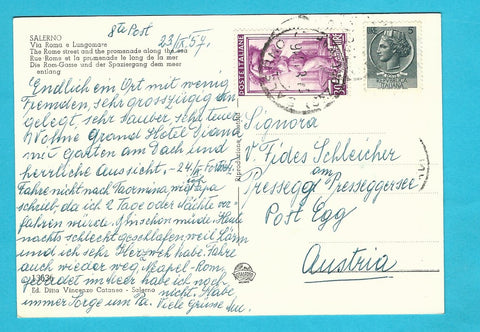 8te Post
23/IX.57.
SALERNO
Via Roma e Lungomare
The Rome street and the promenade along the sea
Rue Roma et la promenade le long de la mer
Die Rom-Gasse und der Spaziergang dem meer
entlang
Endlich ein Ort mit wenig
Fremden, sehr grosszügig an
gelegt, sehr sauber, sehr
Wohne Grand Hotel Diana
mit Garten am Dach und
herrliche Aussicht. - 24/IX. fort
Fahre nicht nach Taormina,
schrieb, da ich 2 Tage oder Nächte
fahren würde. Bin schon müde. Heute
nachts schlecht geschlafen weil Lärm
und ich sehr Herzweh habe. Fahre
auch wieder weg. Neapel - Rom,
gebadet im Meer habe ich noch
nicht. Habe
immer Sorge um Pa. Viele Grüsse
13636
Ed. Ditta Vincenzo Catanso - Salerno
POSTE ITALIANE
LIRE 5
ITALIANA
Signora
v. Fides Schleicher
Pressegg am Presseggersee
Post Egg
Austria